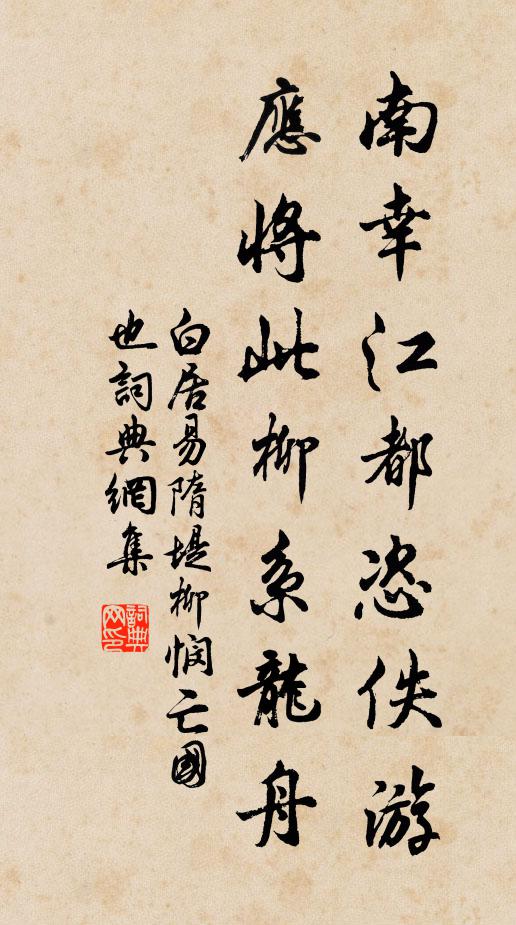 南幸江都恣佚游
應將此柳系龍舟
白居易隋堤柳憫亡國
也詞典網集
詞典
网印